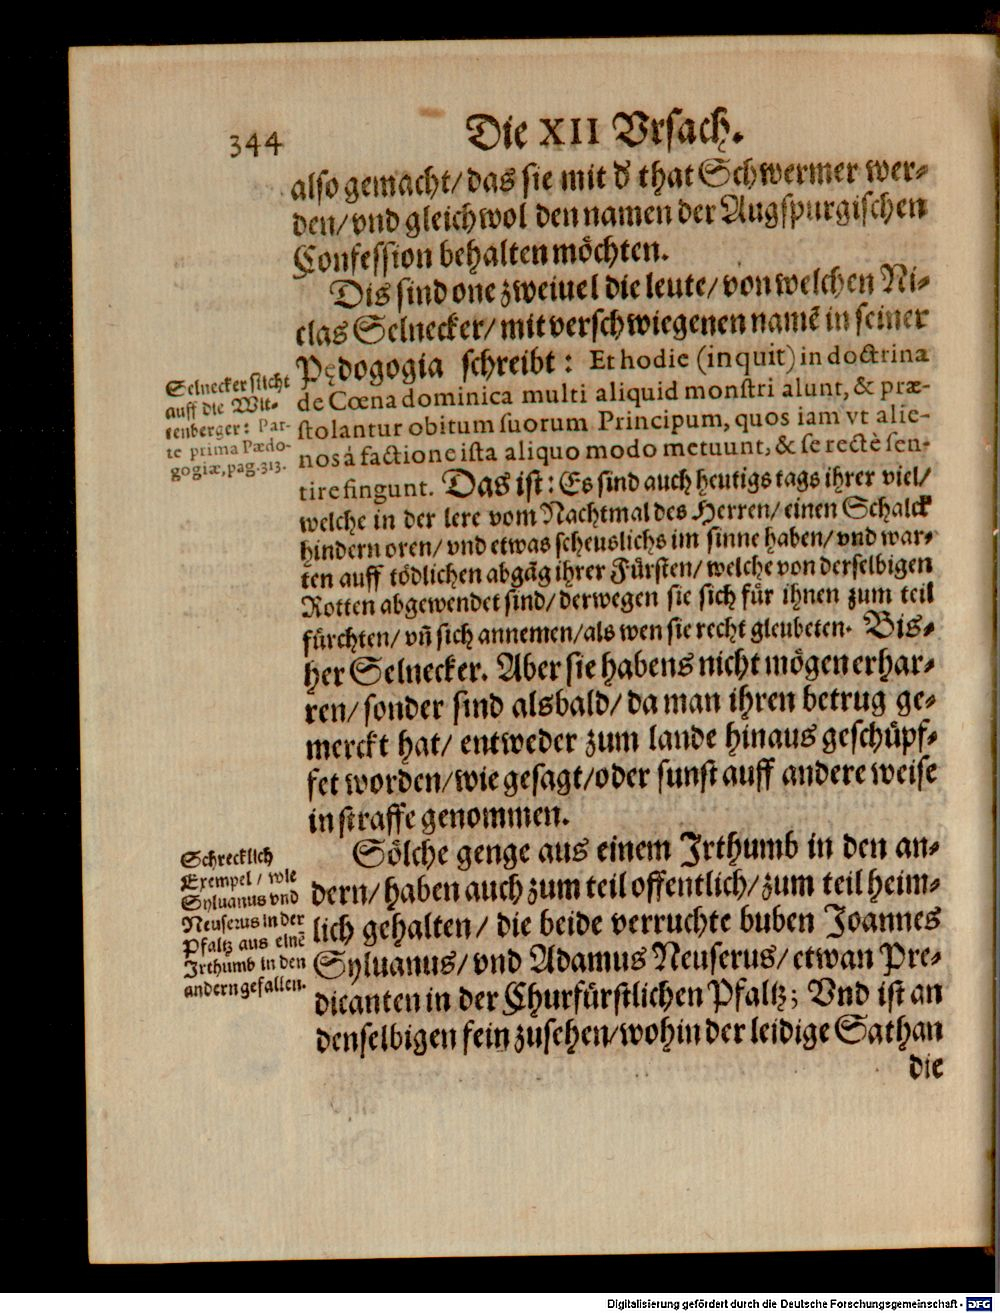 344
Die XII Vrsach.
also gemacht/ das sie mit d̕ that Schwermer wer-
den/ vnd gleichwol den namen der Augspurgischen
Confession behalten möchten.
Dis sind one zweiuel die leute/ von welchen Ni-
clas Selnecker/ mit verschwiegenen namē in seiner
Pędogogia schreibt: Et hodie (inquit) in doctrina
de Cœna dominica multi aliquid monstri alunt, & præ-
stolantur obitum suorum Principum, quos iam vt alie-
nos á factione ista aliquo modo metuunt, & se rectè sen-
tire fingunt. Das ist: Es sind auch heutigs tags ihrer viel/
welche in der lere vom Nachtmal des Herren/ einen Schalck
hindern oren/ vnd etwas scheuslichs im sinne haben/ vnd war-
ten auff tödlichen abgāg ihrer Fürsten/ welche von derselbigen
Rotten abgewendet sind/ derwegen sie sich für ihnen zum teil
fürchten/ vñ sich annemen/ als wen sie recht gleubeten. Bis-
her Selnecker. Aber sie habens nicht mögen erhar-
ren/ sonder sind alsbald/ da man ihren betrug ge-
merckt hat/ entweder zum lande hinaus geschüpf-
fet worden/ wie gesagt/ oder sunst auff andere weise
in straffe genommen.
Selnecker sticht
auff die Wit-
tenberger: Par-
te prima Pædo-
gogiæ, pag. 313.
Sölche genge aus einem Irthumb in den an-
dern/ haben auch zum teil offentlich/ zum teil heim-
lich gehalten/ die beide verruchte buben Joannes
Syluanus/ vnd Adamus Neuserus/ etwan Pre-
dicanten in der Churfürstlichen Pfaltz; Vnd ist an
denselbigen fein zusehen/ wohin der leidige Sathan
die
Schrecklich
Exempel / wie
Syluanus vnd
Neuserus in der
Pfaltz aus einē
Irthumb in den
andern gefallen.
Digitalisierung gefördert durch die Deutsche Forschungsgemeinschaft - DFG